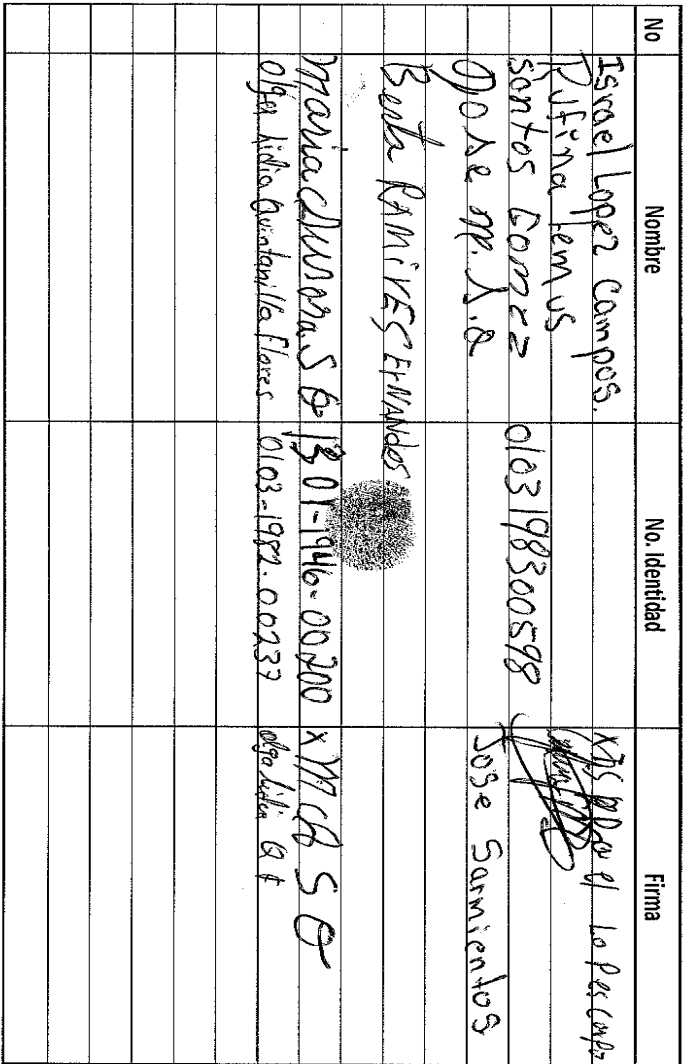 No Nombre No. Identidad Firma
Israel Lopez Campos.
Rufina lemus
santos Gomez 0103198300598
Jose Sarmientos
Berta RAMIVES ErNANdES
maria 1301-1946-00200 x
olga lidia Quintanilla flores 0103-1982-00237 olga lidia Q f